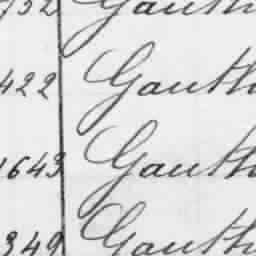 732 Gauth
422 Gauth
1643 Gauth
349 Gauth